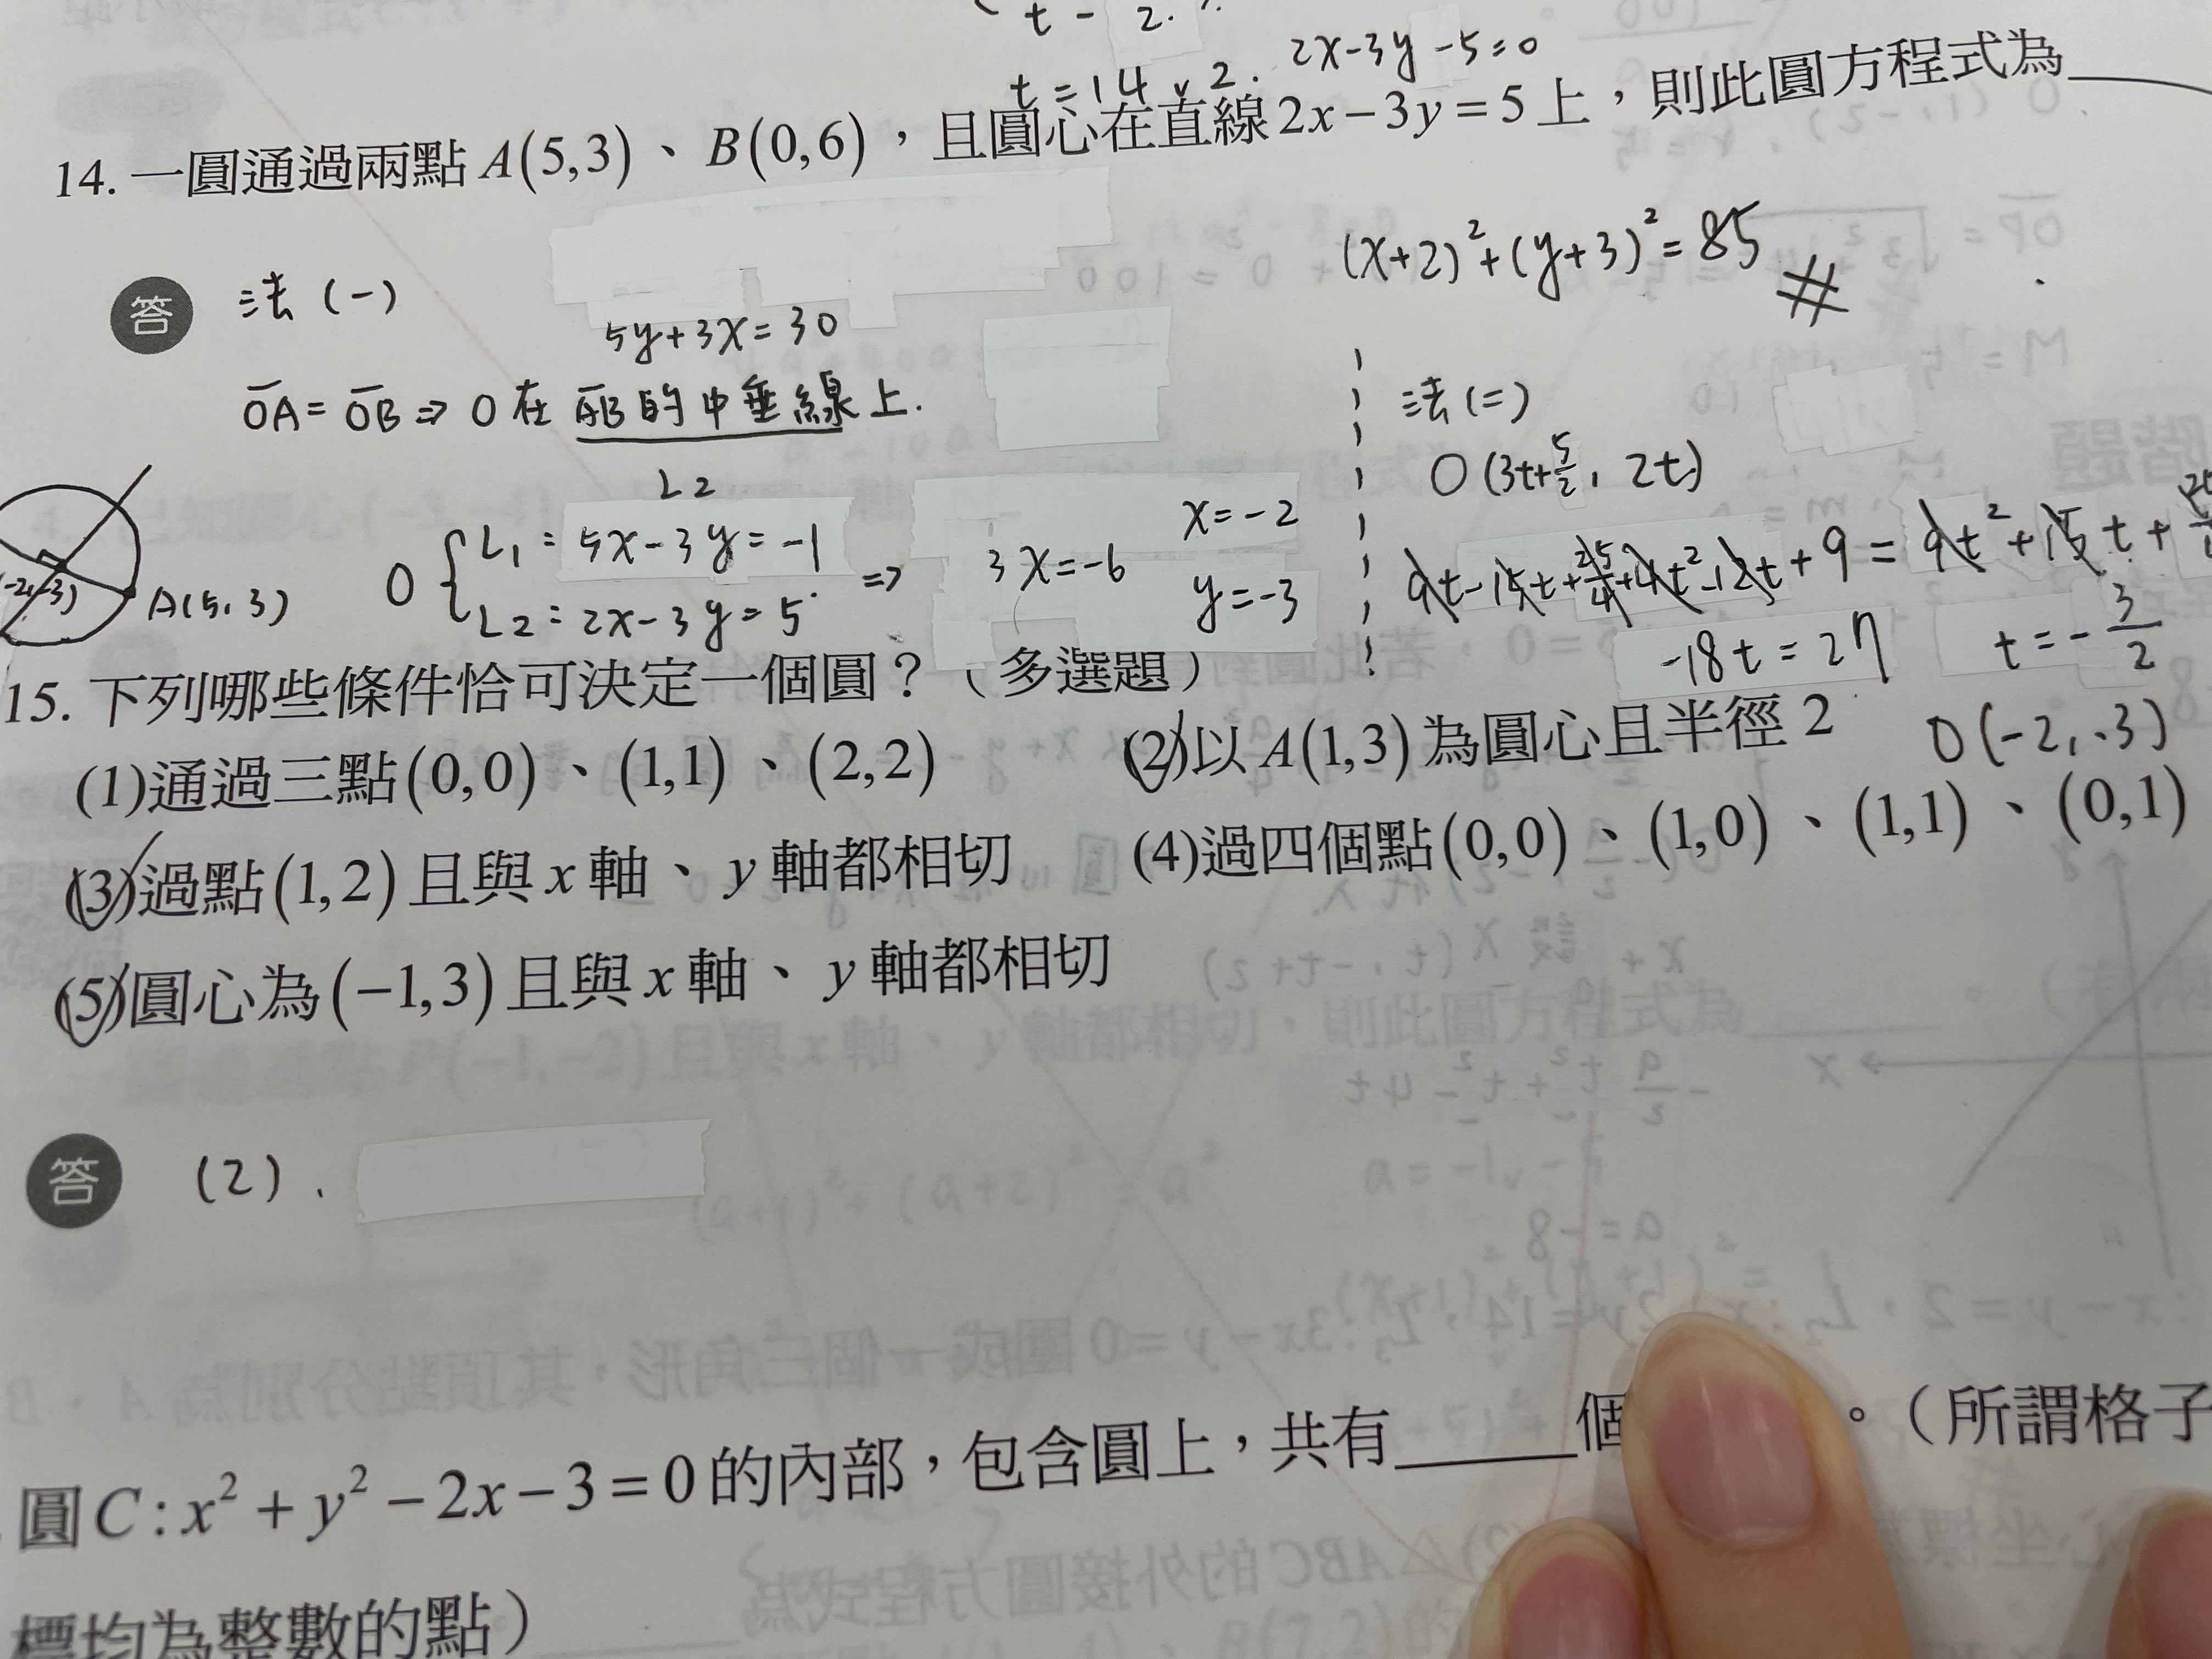 t - 2.
t = 14 v 2. 2x-3y-5=0
14. 一圓通過兩點 A(5,3)、B(0,6)，且圓心在直線 2x-3y=5 上，則此圓方程式為
(x+2)²+(y+3)²=85 #
答 法(一)
5y+3x=30
OA=OB⇒O在AB的中垂線上.
L2
O { L1: 5x-3y=-1
L2: 2x-3y=5. ⇒ 3x=-6 x=-2
y=-3
(-2,-3) A(5,3)
法(二)
O(3t+5/2, 2t)
9t-15t+25/4+4t²-12t+9=9t²+15t+
-18t=27 t=-3/2
O(-2,-3)
15. 下列哪些條件恰可決定一個圓？（多選題）
(1)通過三點(0,0)、(1,1)、(2,2) (2)以A(1,3)為圓心且半徑2
(3)過點(1,2)且與x軸、y軸都相切 (4)過四個點(0,0)、(1,0)、(1,1)、(0,1)
(5)圓心為(-1,3)且與x軸、y軸都相切
答 (2).
圓C:x²+y²-2x-3=0的內部，包含圓上，共有______個。（所謂格子
標均為整數的點）